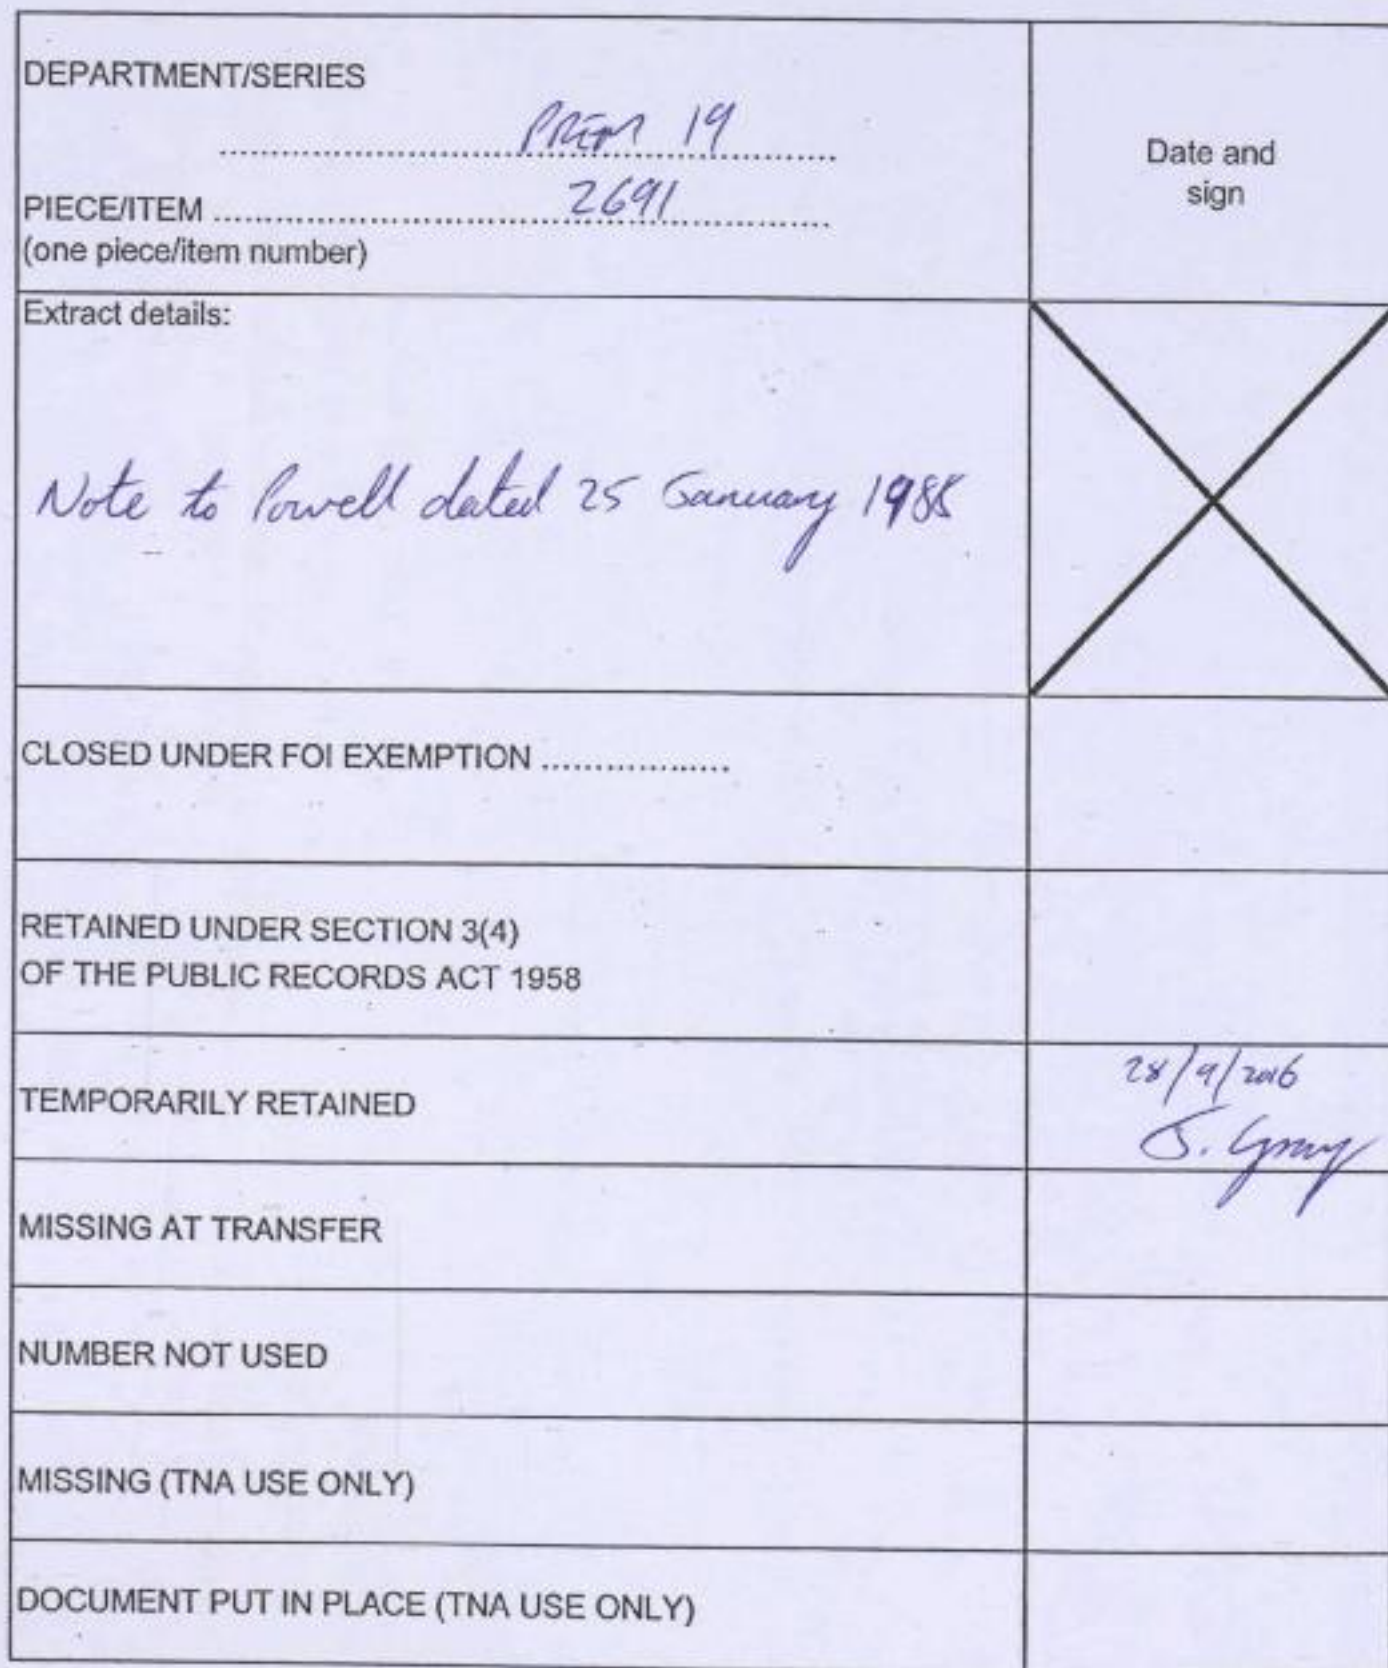 DEPARTMENT/SERIES
PREM 19
Date and
sign
PIECE/ITEM 2691
(one piece/item number)
Extract details:
Note to Powell dated 25 January 1988
CLOSED UNDER FOI EXEMPTION ..................
RETAINED UNDER SECTION 3(4)
OF THE PUBLIC RECORDS ACT 1958
TEMPORARILY RETAINED
28/9/2016
J. Gray
MISSING AT TRANSFER
NUMBER NOT USED
MISSING (TNA USE ONLY)
DOCUMENT PUT IN PLACE (TNA USE ONLY)